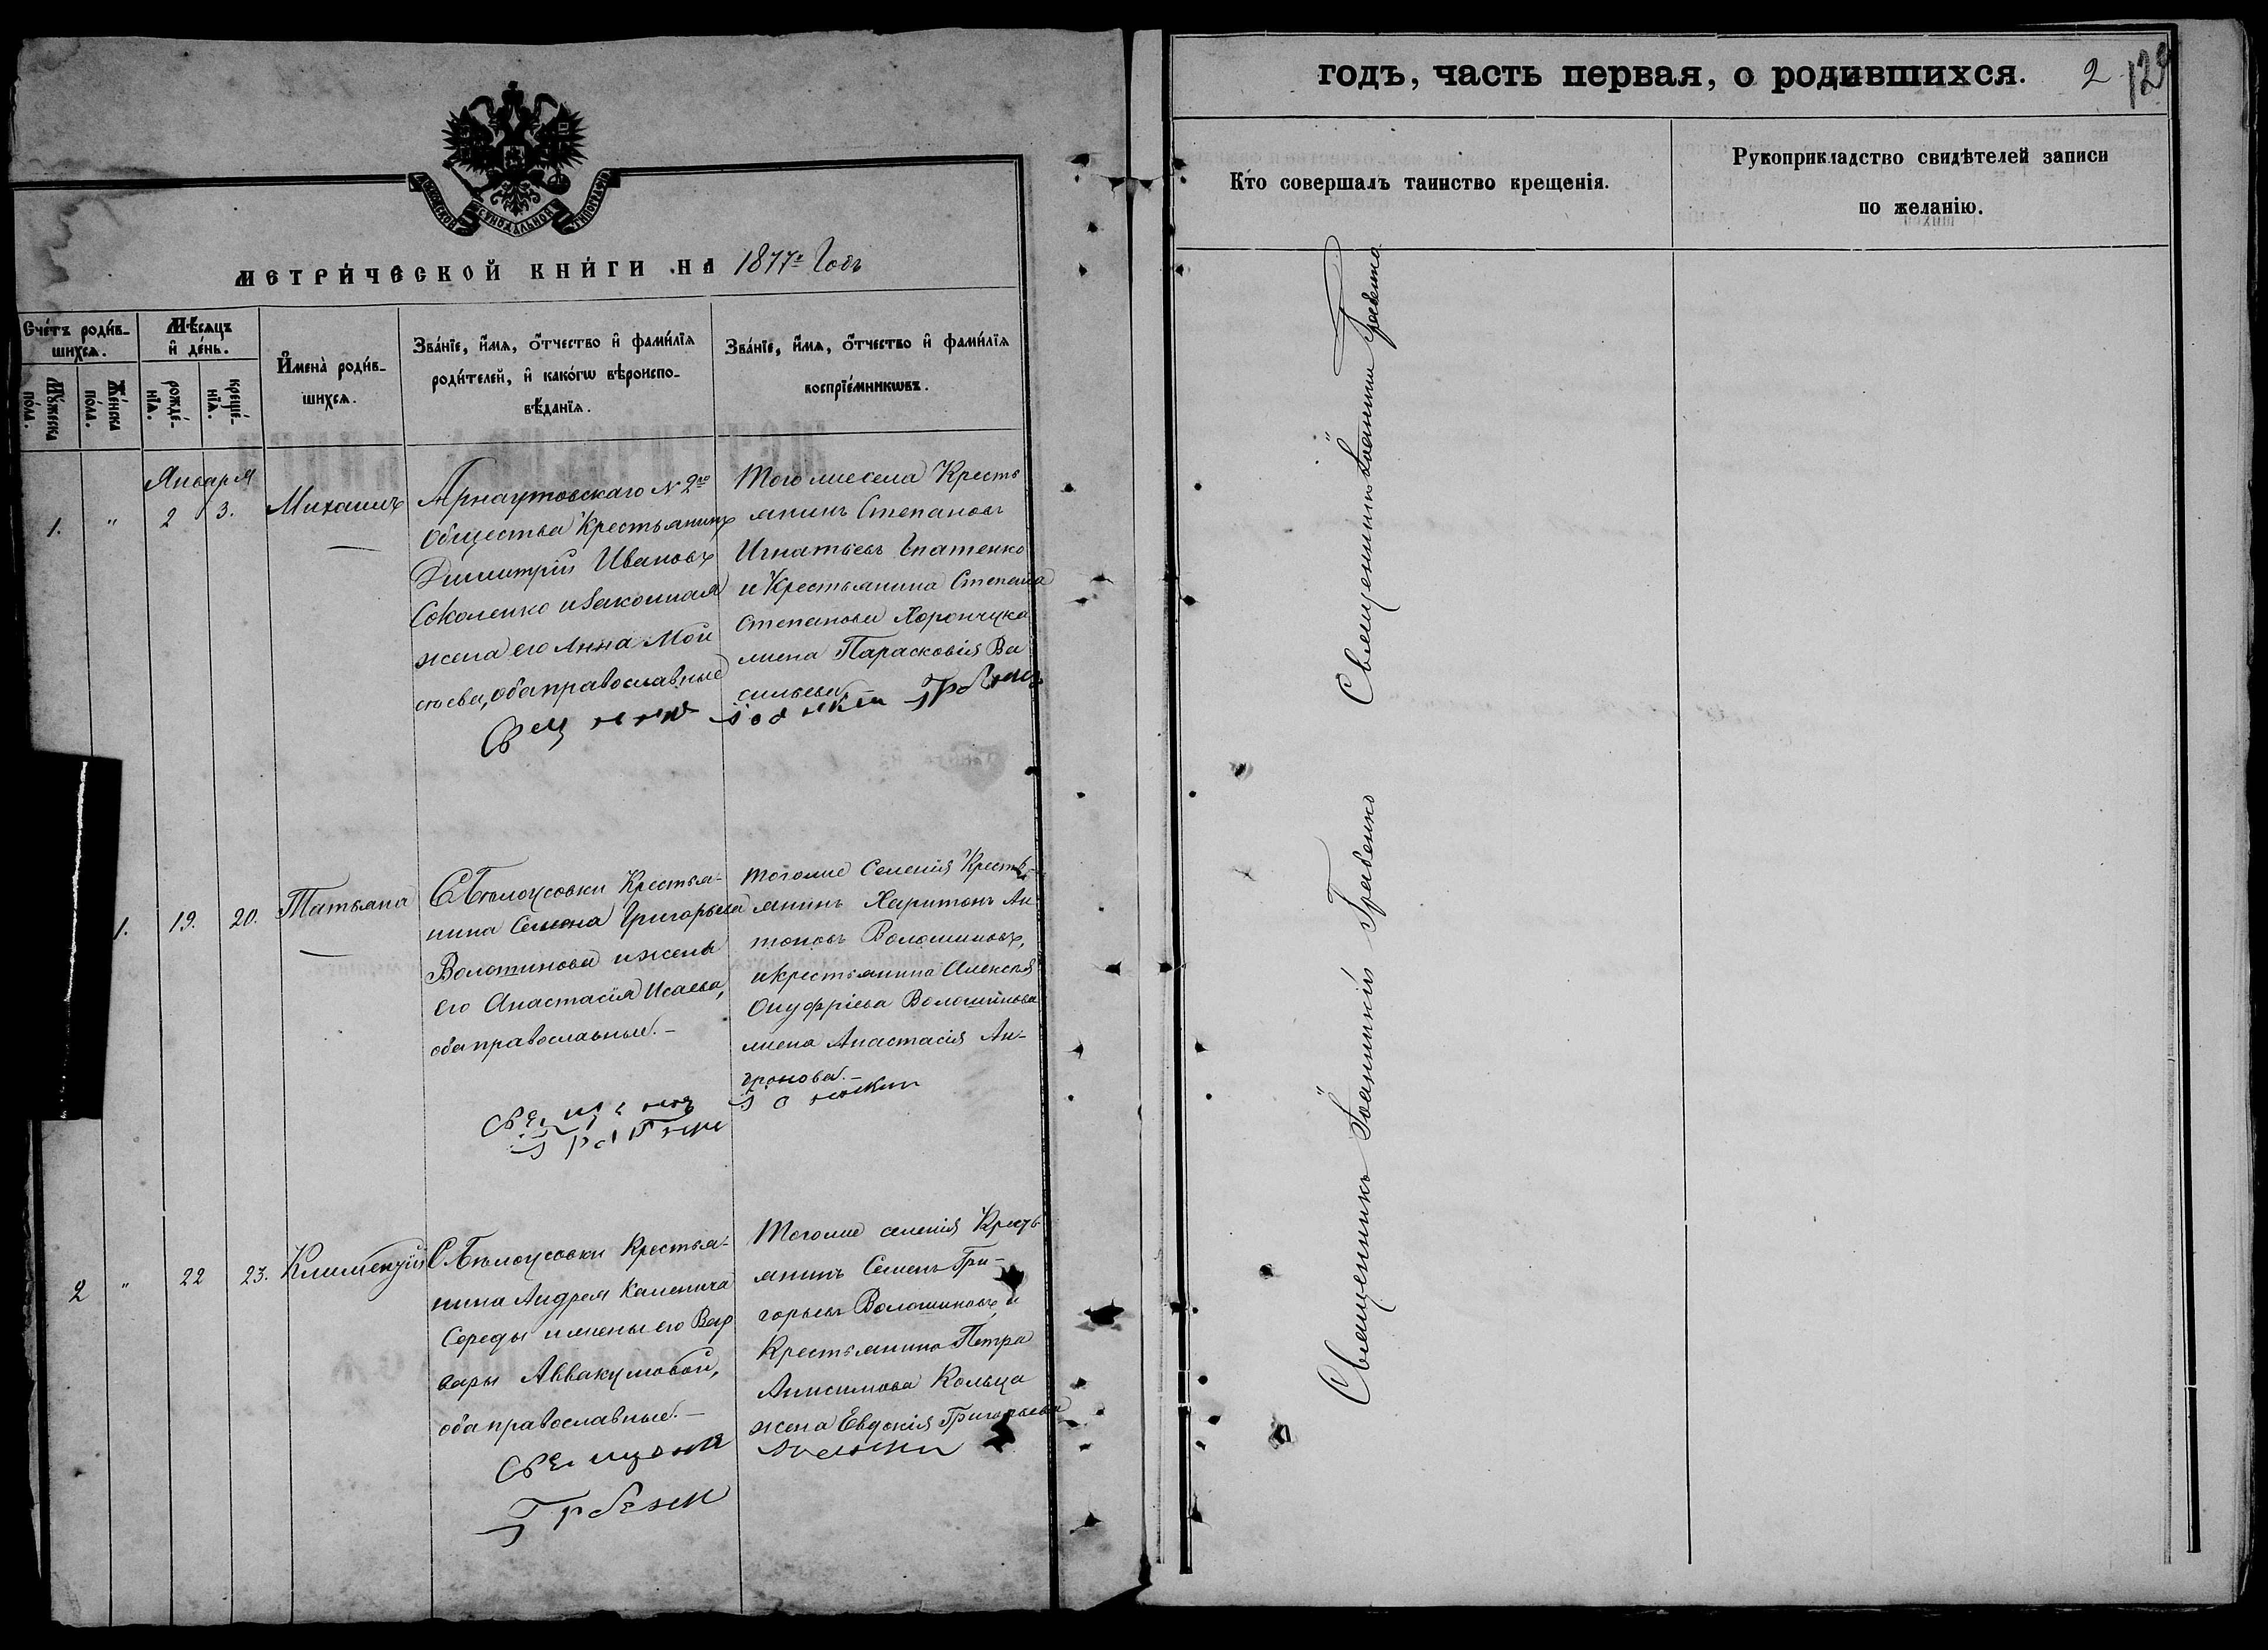 МОСКОВСКОЙ СѴНОДАЛЬНОЙ ТИПОГРАФІИ
МЕТРИ́ЧЕСКОЙ КНИ́ГИ НА 1877й Годъ
Сче́тъ роди́в-
шихсѧ.
Мꙋ́жеска по́ла.
Же́нска по́ла.
Мѣ́сѧцъ
и҆ де́нь.
рожде́-
нїѧ.
креще́-
нїѧ.
И҆мена̀ роди́в-
шихсѧ.
Зва́нїе, и҆́мѧ, ѻ҆́тчество и҆ фами́лїѧ
роди́телей, и҆ како́гѡ вѣроиспо-
вѣ́данїѧ.
Зва́нїе, и҆́мѧ, ѻ҆́тчество и҆ фами́лїѧ
воспрїе́мникѡвъ.
Января
1. " 2 3. Михаилъ
Арнаутовскаго № 2го
Общества Крестьянинъ
Димитрій Ивановъ
Соколенко и законная
жена его Анна Мои
сеева, оба православные
Того же села Кресть
янинъ Степановъ
Игнатьевъ
и Крестьянина Степана
Степанова
жена Параскoвія Ва
сильева
1. 19. 20. Татьяна
С Бѣлоусовки Крестья-
нина Семена Григорьева
Волошинова и жены
его Анастасія Исаева,
оба православные.-
Того же Селенія Кресть-
янинъ Харитонъ Ан
тоновъ Волошиновъ,
и крестьянина Алексѣя
Онуфріева Волошинова
жена Анастасія Ан-
дронова.-
2 " 22 23. Климентій
С Бѣлоусовки Крестья-
нина Андрея
Середы и жены его Вар
вары Аввакумовой,
оба православные.-
Того же селенія Кресть
янинъ Семенъ Гри-
горьевъ Волошиновъ, и
Крестьянина Петра
Анисимова Кольца
жена Евдокія Григорьева
годъ, часть первая, о родившихся.
2
129
Кто совершалъ таинство крещенія.
Рукоприкладство свидѣтелей записи
по желанію.
Священникъ Іоанникій Гребенко
Священникъ Іоанникій Гребенко